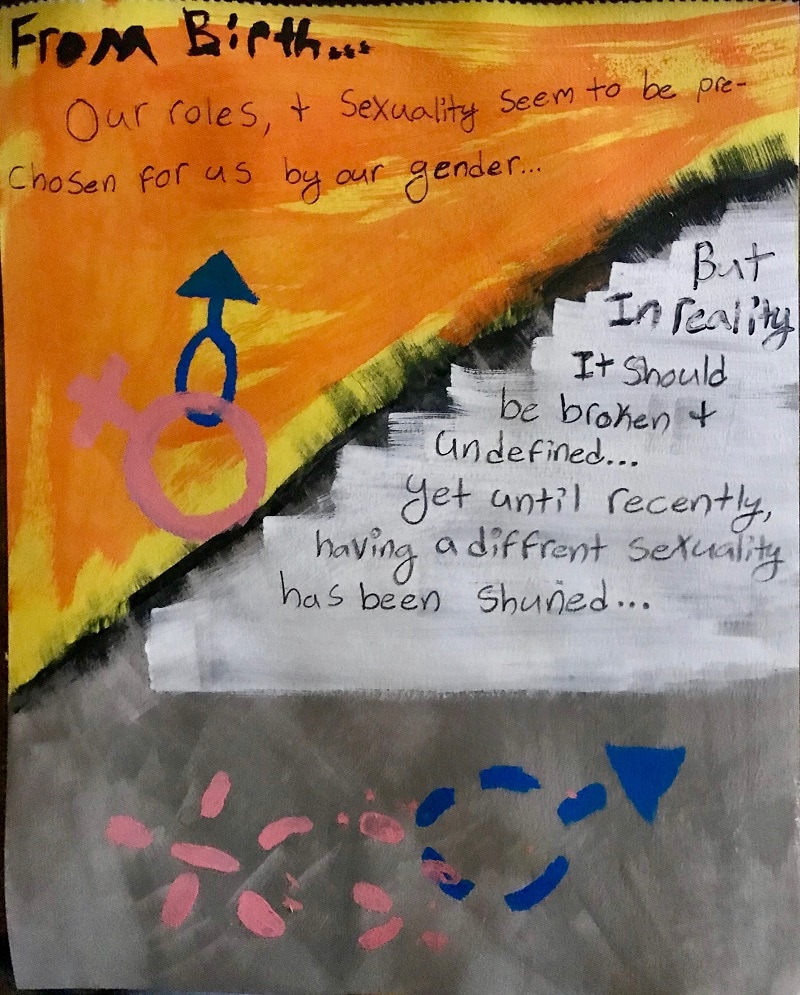 From Birth...
Our roles, + sexuality seem to be pre-
chosen for us by our gender...
But
In reality
It should
be broken +
undefined...
yet until recently,
having a diffrent sexuality
has been shuned...